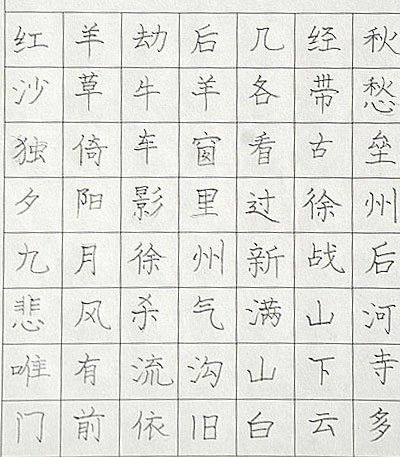 红羊劫后几经秋
沙草牛羊各带愁
独倚车窗看古垒
夕阳影里过徐州
九月徐州新战后
悲风杀气满山河
唯有流沟山下寺
门前依旧白云多